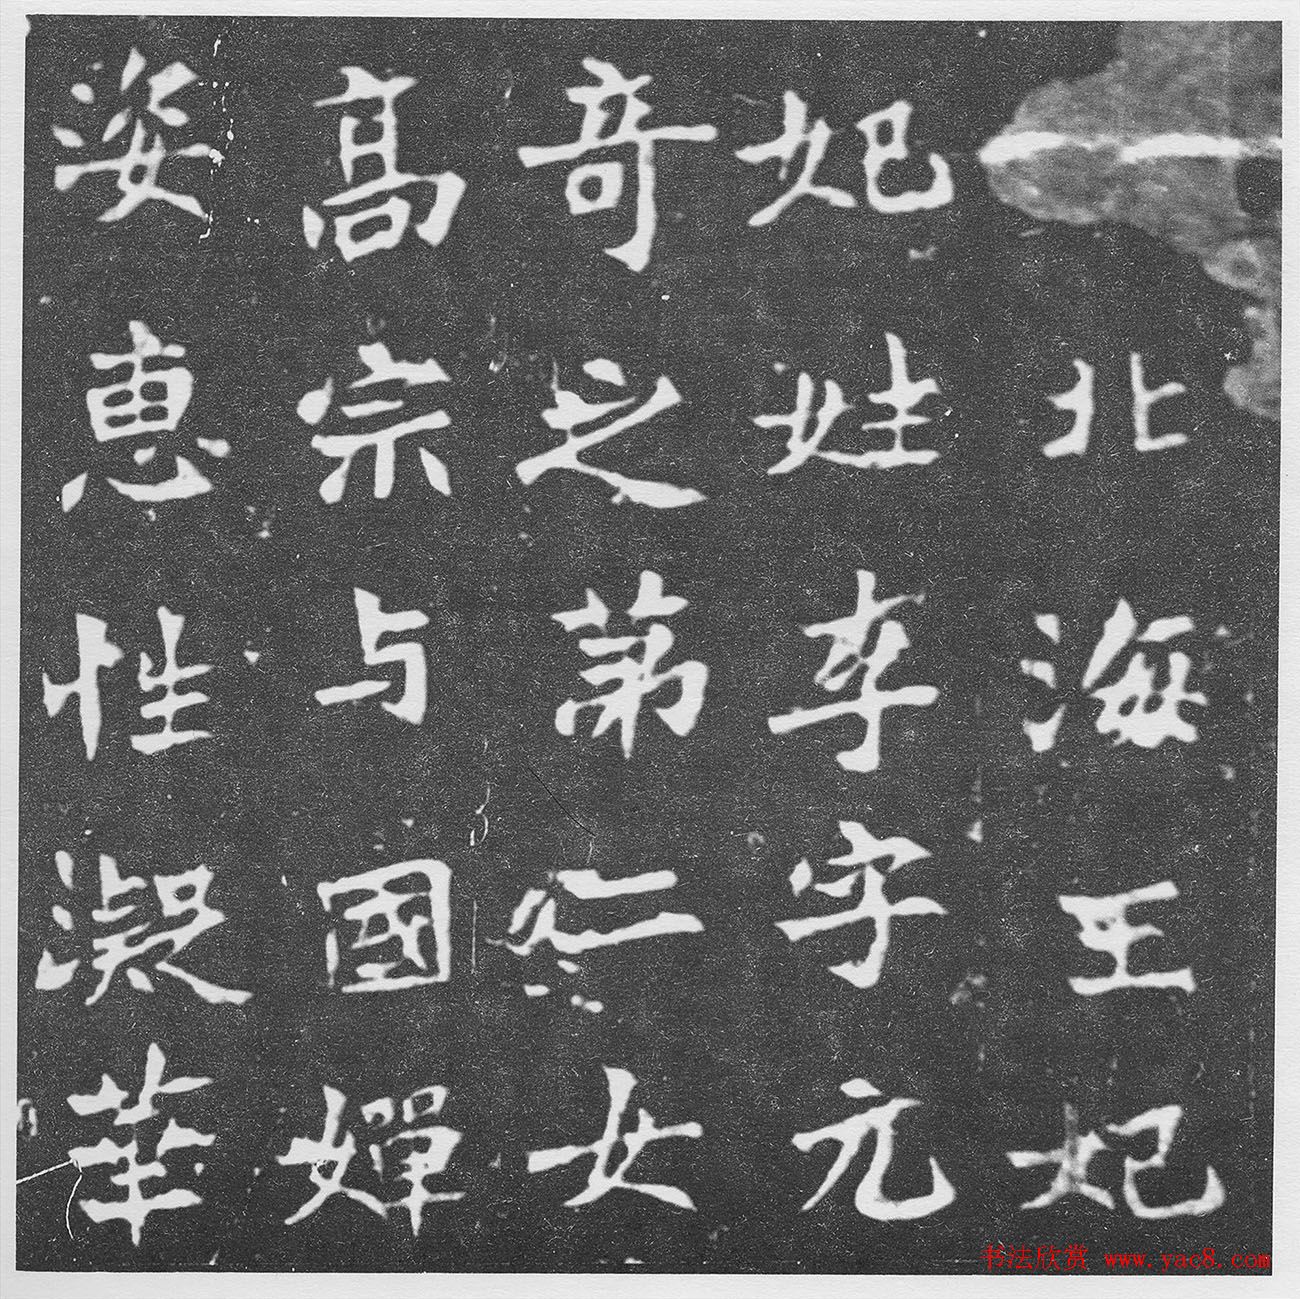 北海王妃
妃姓李字元
奇之苐二女
高宗与國嬋
姿惠性凝華
书法欣赏 www.yac8.com